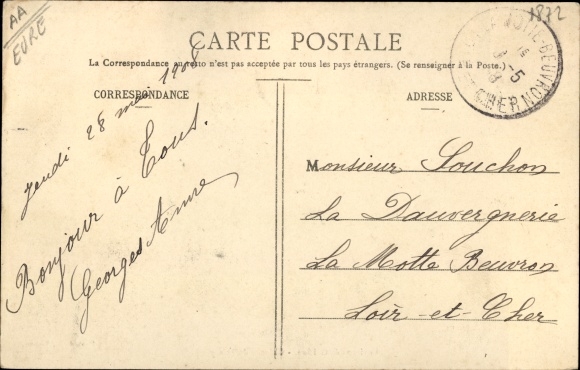 AA
EURE
1872
CARTE POSTALE
La Correspondance au recto n'est pas acceptée par tous les pays étrangers. (Se renseigner à la Poste.)
CORRESPONDANCE
ADRESSE
Jeudi 28 mai 1908
Bonjour à Tous.
Georges
Monsieur Souchon
La Dauvergnerie
La Motte Beuvron
Loir-et-Cher
LA MOTTE-BEUVRON
5
CHER